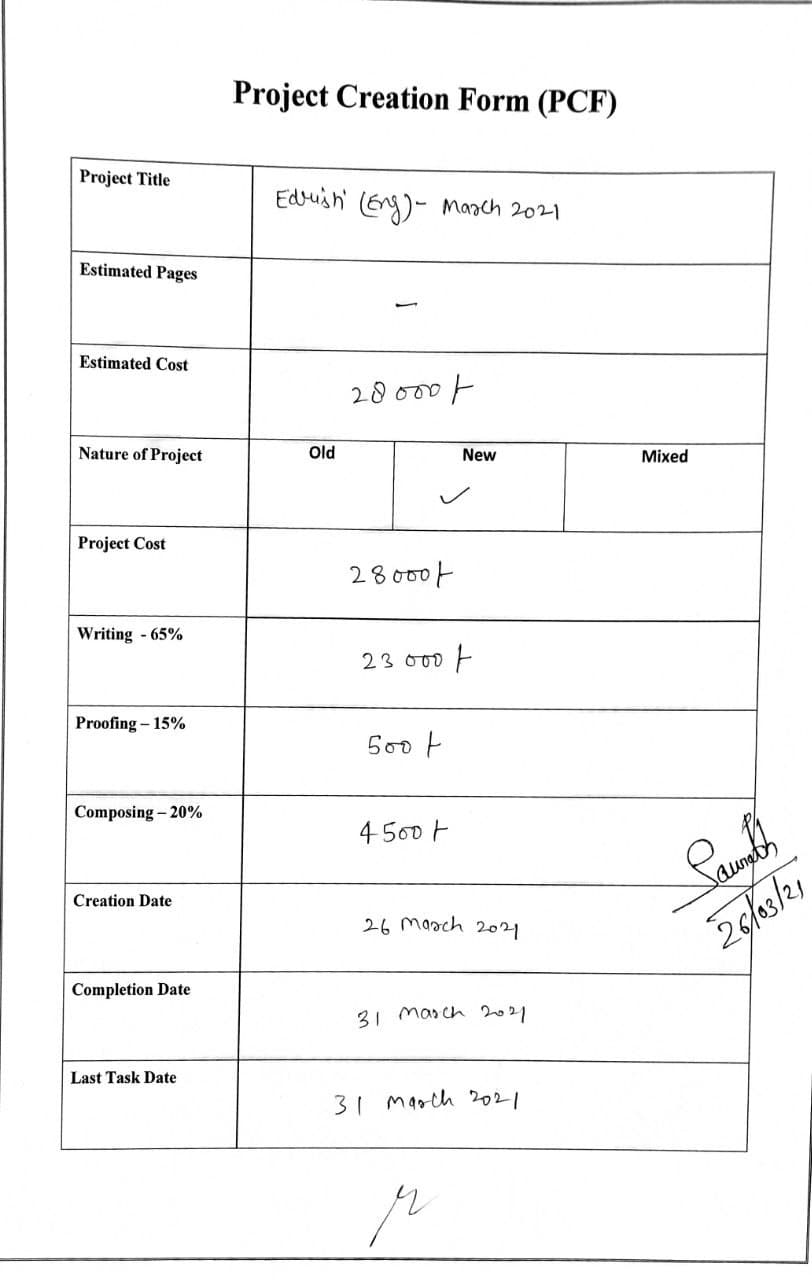 Project Creation Form (PCF)
Project Title
Edrishi (Eng) - March 2021
Estimated Pages
-
Estimated Cost
28000/-
Nature of Project Old New Mixed
✓
Project Cost
28000/-
Writing - 65%
23000/-
Proofing – 15%
500/-
Composing – 20%
4500/-
Saurabh
26/03/21
Creation Date
26 March 2021
Completion Date
31 March 2021
Last Task Date
31 March 2021